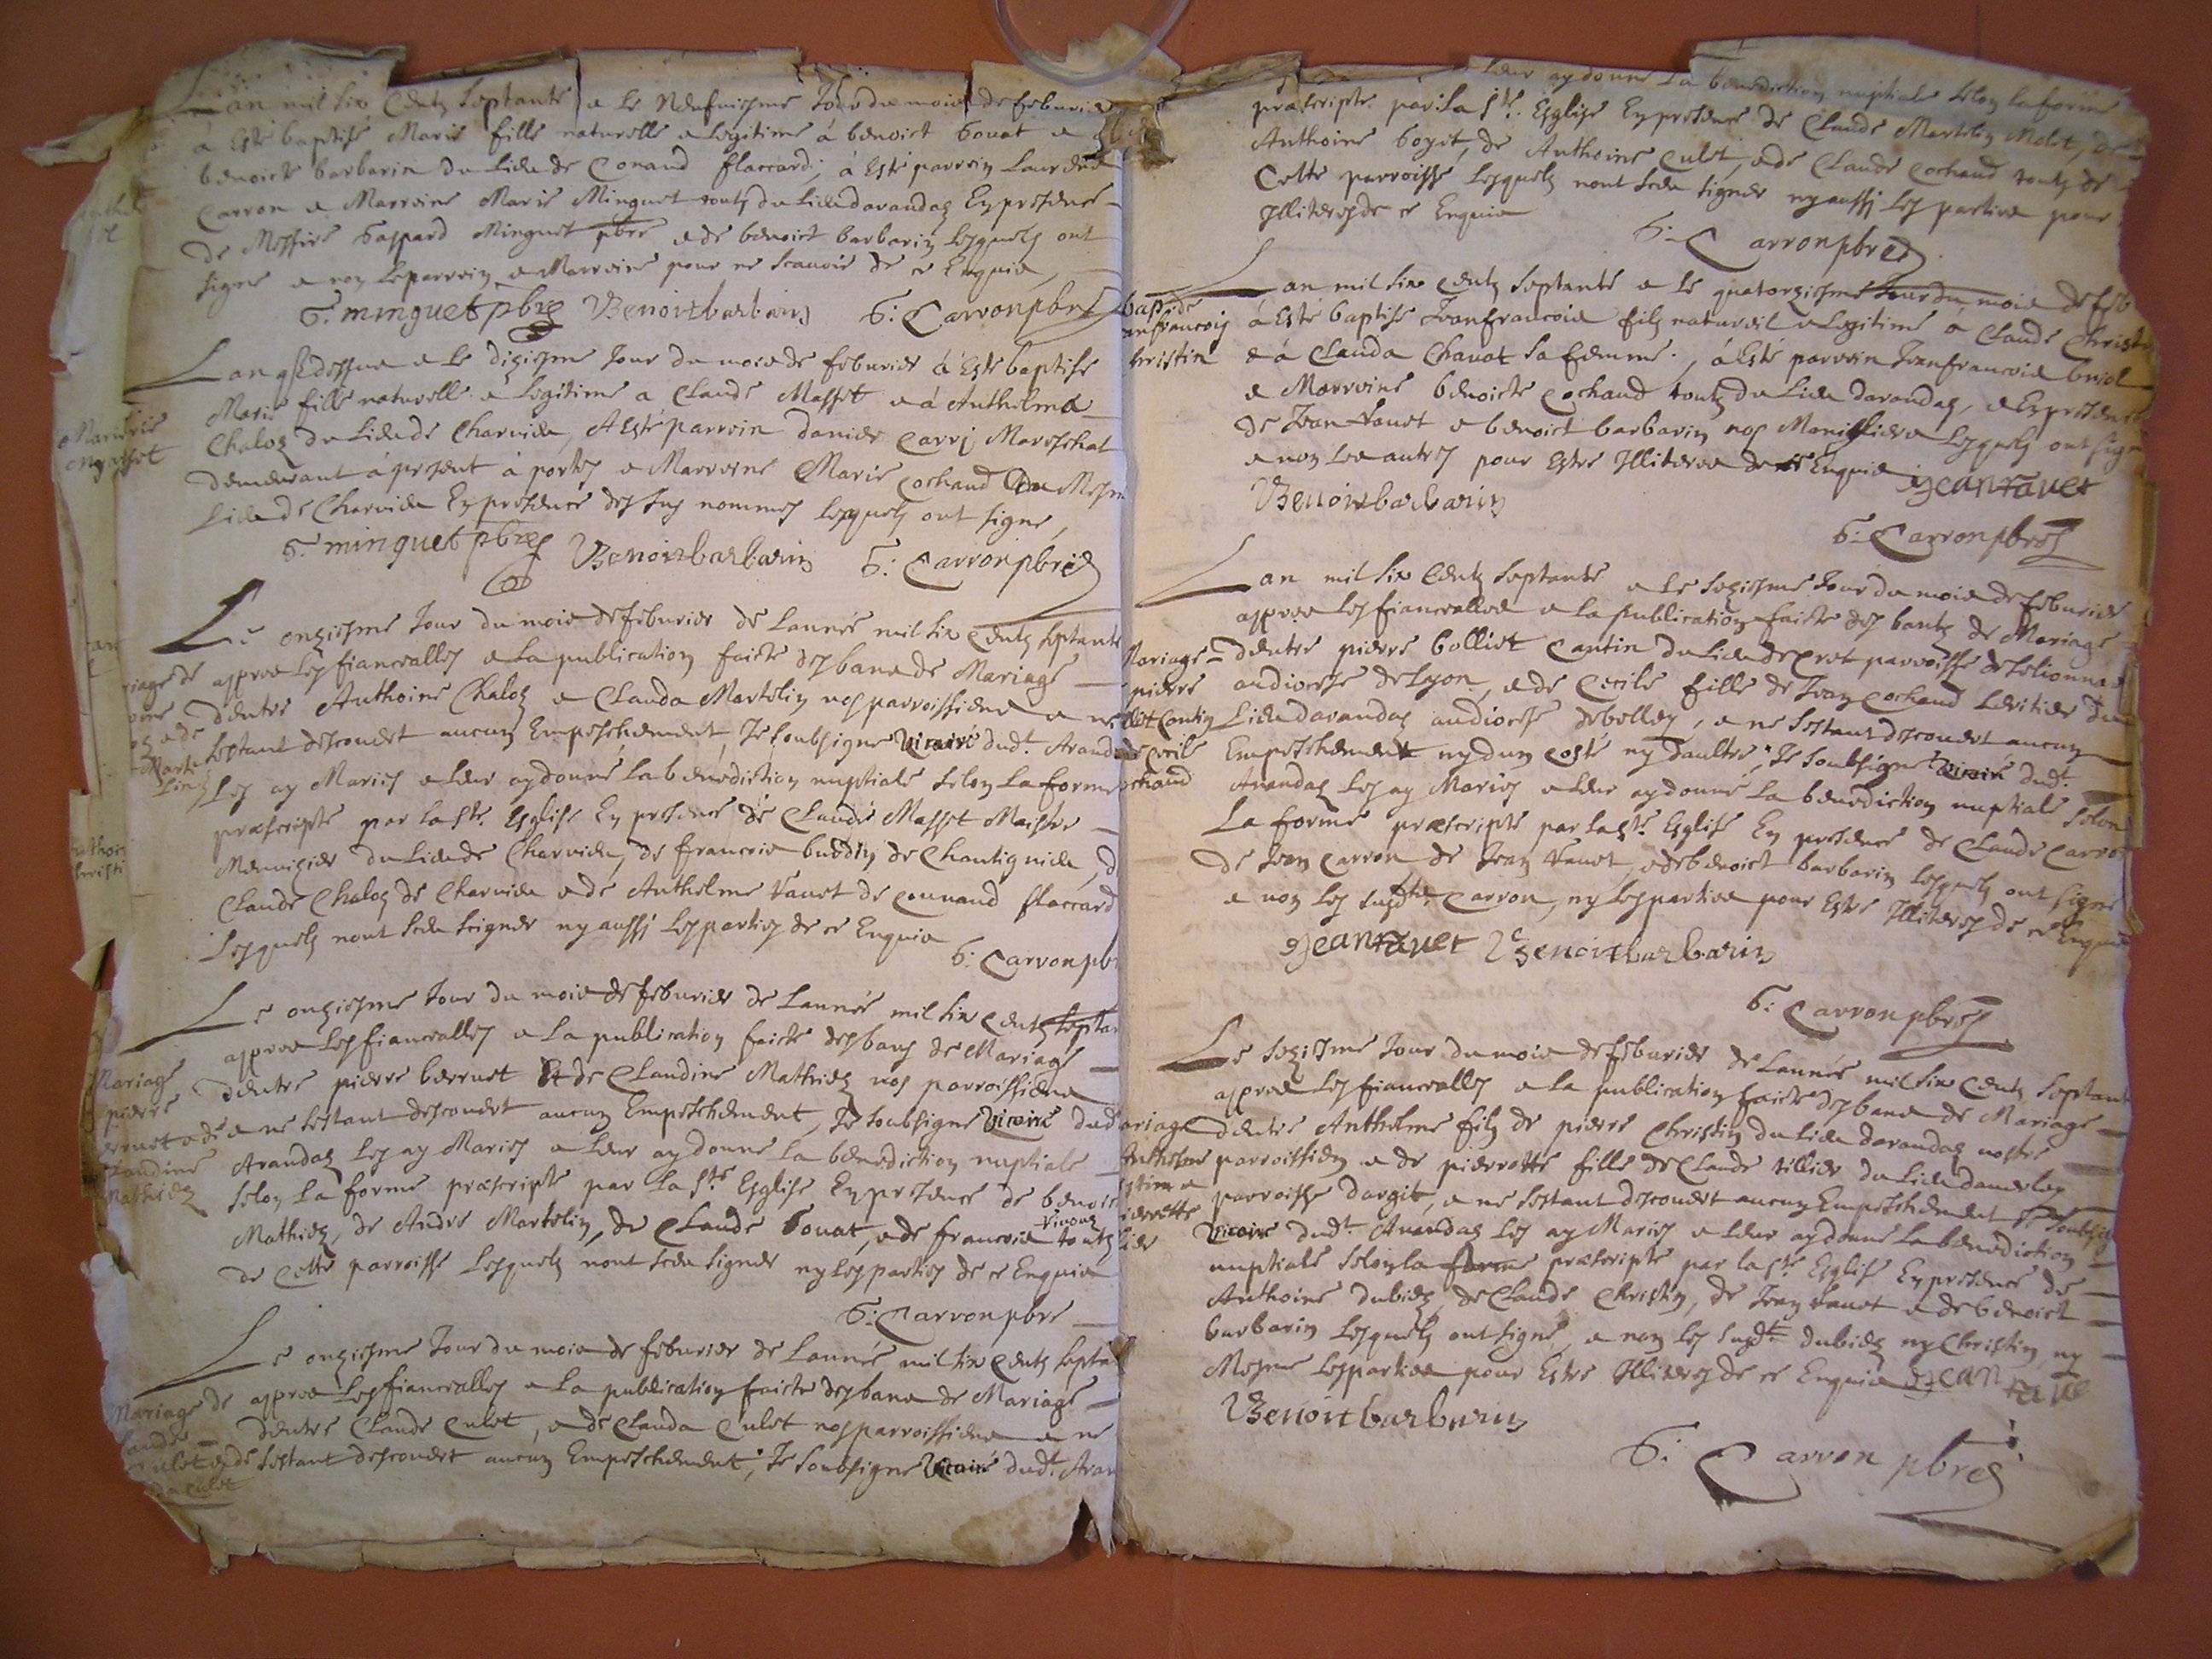 Lan mil six centz septante e le neufuiesme Jour du mois de feburier
à esté baptisé Marie fille naturelle e legitime à benoict bouat e
benoicte barbarin du lieu de Conand flaccard; à esté parrein
Carron e Marreine Marie Minguet toutz du lieu darandaz En presence
de Messire Gaspard Minguet pbre e de benoict barbarin lesquelz ont
signé e non le parrein e Marreine pour ne scauoir de ce Enquis
G. minguet pbre Benoit barbarin G: Carron pbre
Lan q dessus e le dixiesme Jour du mois de feburier à esté baptisé
Marie fille naturelle e legitime a Claude Masset e à Anthelma
Chaloz du lieu de Charuieu, A esté parrein danier Carrj Mareschal
demeurant à present à portes e Marreine Marie Cochand du Mesm
lieu de Charuieu En presence des sus nommes lesquelz ont signé
G. minguet pbre Benoit barbarin G: Carron pbre
Le onziesme Jour du mois de feburier de lannée mil six centz septante
apres les fiancealles e la publication faicte des bans de Mariage
dentre Anthoine Chaloz e Clauda Martelin nos parroissiens e ne
sestant descouuert aucun Empeschement, Je soubsigné vicaire dudt. Arand
les ay Mariés e leur ay donné la benediction nuptiale selon la forme
præscripte par la ste. Esglise En presence de Claude Masset Maistre
Menuisier du lieu de Charuieu, de francois buddin de Chantignieu, d
Claude Chaloz de Charuieu e de Anthelme Rauet de Counand flaccard
lesquelz nont sceu seigner ny aussj les parties de ce Enquis
G: Carron pb
Le onziesme Jour du mois de feburier de lannée mil six centz septan
apres les fiancealles e la publication faicte des bans de Mariage
dentre pierre berruet Et de Claudine Mathiez nos parroissiens
e ne sestant descouuert aucun Empeschement, Je soubsigné vicaire dud
Arandaz les ay Mariés e leur ay donné la benediction nuptiale
selon la forme præscripte par la ste Esglise En presence de benoict
Mathiez, de André Martelin, de Claude bouat, e de francois Viuouz toutz
de Cette parroisse lesquelz nont sceu signer ny les parties de ce Enquis
G: Carron pbre
Le onziesme Jour du mois de feburier de lannée mil six centz septan
apres les fiancealles e la publication faicte des bans de Mariage
dentre Claude Culet, e de Clauda Culet nos parroissiens e ne
sestant descouuert aucun Empeschement, Je soubsigné vicaire dudt. Aran
Mariage
pierre
berruet e de
Claudine
Mathiez
Mariage de
leur ay donné la benediction nuptiale selon la forme
præscripte par la ste. Esglise En presence de Claude Martelin Molet, de
Anthoine boget, de Anthoine Culet, e de Claude Cochand toutz de
Cette parroisse lesquelz nont sceu signer ny aussj les parties pour
Illiteres de ce Enquis
G: Carron pbre
Lan mil six centz septante e le quatorziesme Jour du mois de feb
à esté baptisé Jeanfrancois filz naturel e legitime à Claude Christin
e à Clauda Chauat sa femme, à esté parrein Jeanfrancois briol
e Marreine benoicte Cochand toutz du lieu darandaz, e En presence
de Jean Rauet e benoict barbarin nos lesquelz ont sig
e non les autres pour Estre Illiteres de ce Enquis Jean rauet
Benoit barbarin
G: Carron pbre
Lan mil six centz septante e le seziesme Jour du mois de feburier
apres les fiancealles e la publication faicte des bantz de Mariage
dentre pierre bolliet Cantin du lieu de Cret parroisse de
au diocese de Lyon, e de Cecile fille de Jean Cochand du
lieu darandaz au diocese de belley, e ne sestant descouuert aucun
Empeschement ny dun costé ny daultre, Je soubsigné vicaire dudt.
Arandaz les ay Mariés e leur ay donné la benediction nuptiale selon
la forme præscripte par la ste Esglise En presence de Claude Carron
de Jean Carron de Jean Rauet, e de benoict barbarin lesquelz ont signé
e non les susdts. Carron, ny les parties pour Estre Illiteres de ce Enquis
Jean rauet Benoit barbarin
G: Carron pbre
Le seziesme Jour du mois de feburier de lannée mil six centz septant
apres les fiancealles e la publication faicte des bans de Mariage
dentre Anthelme filz de pierre Christin du lieu darandaz nostre
parroissien e de pierrette fille de Claude tillier du lieu
parroisse dargit, e ne sestant descouuert aucun Empeschement Je soubsig
vicaire dudt. Arandaz les ay Mariés e leur ay donné la benediction
nuptiale selon la forme præscripte par la ste Esglise En presence de
Anthoine dubiez, de Claude Christin, de Jean Rauet e de benoict
barbarin lesquelz ont signé, e non les susdts dubiez ny Christin, ny
Mesme les parties pour Estre Illiteres de ce Enquis Jean raue
Benoit barbarin
G: Carron pbre